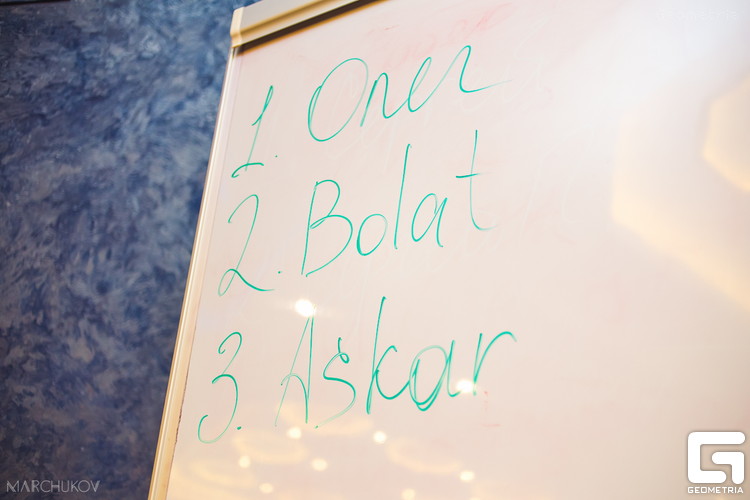 1. Oner
2. Bolat
3. Askar
MARCHUKOV
GEOMETRIA